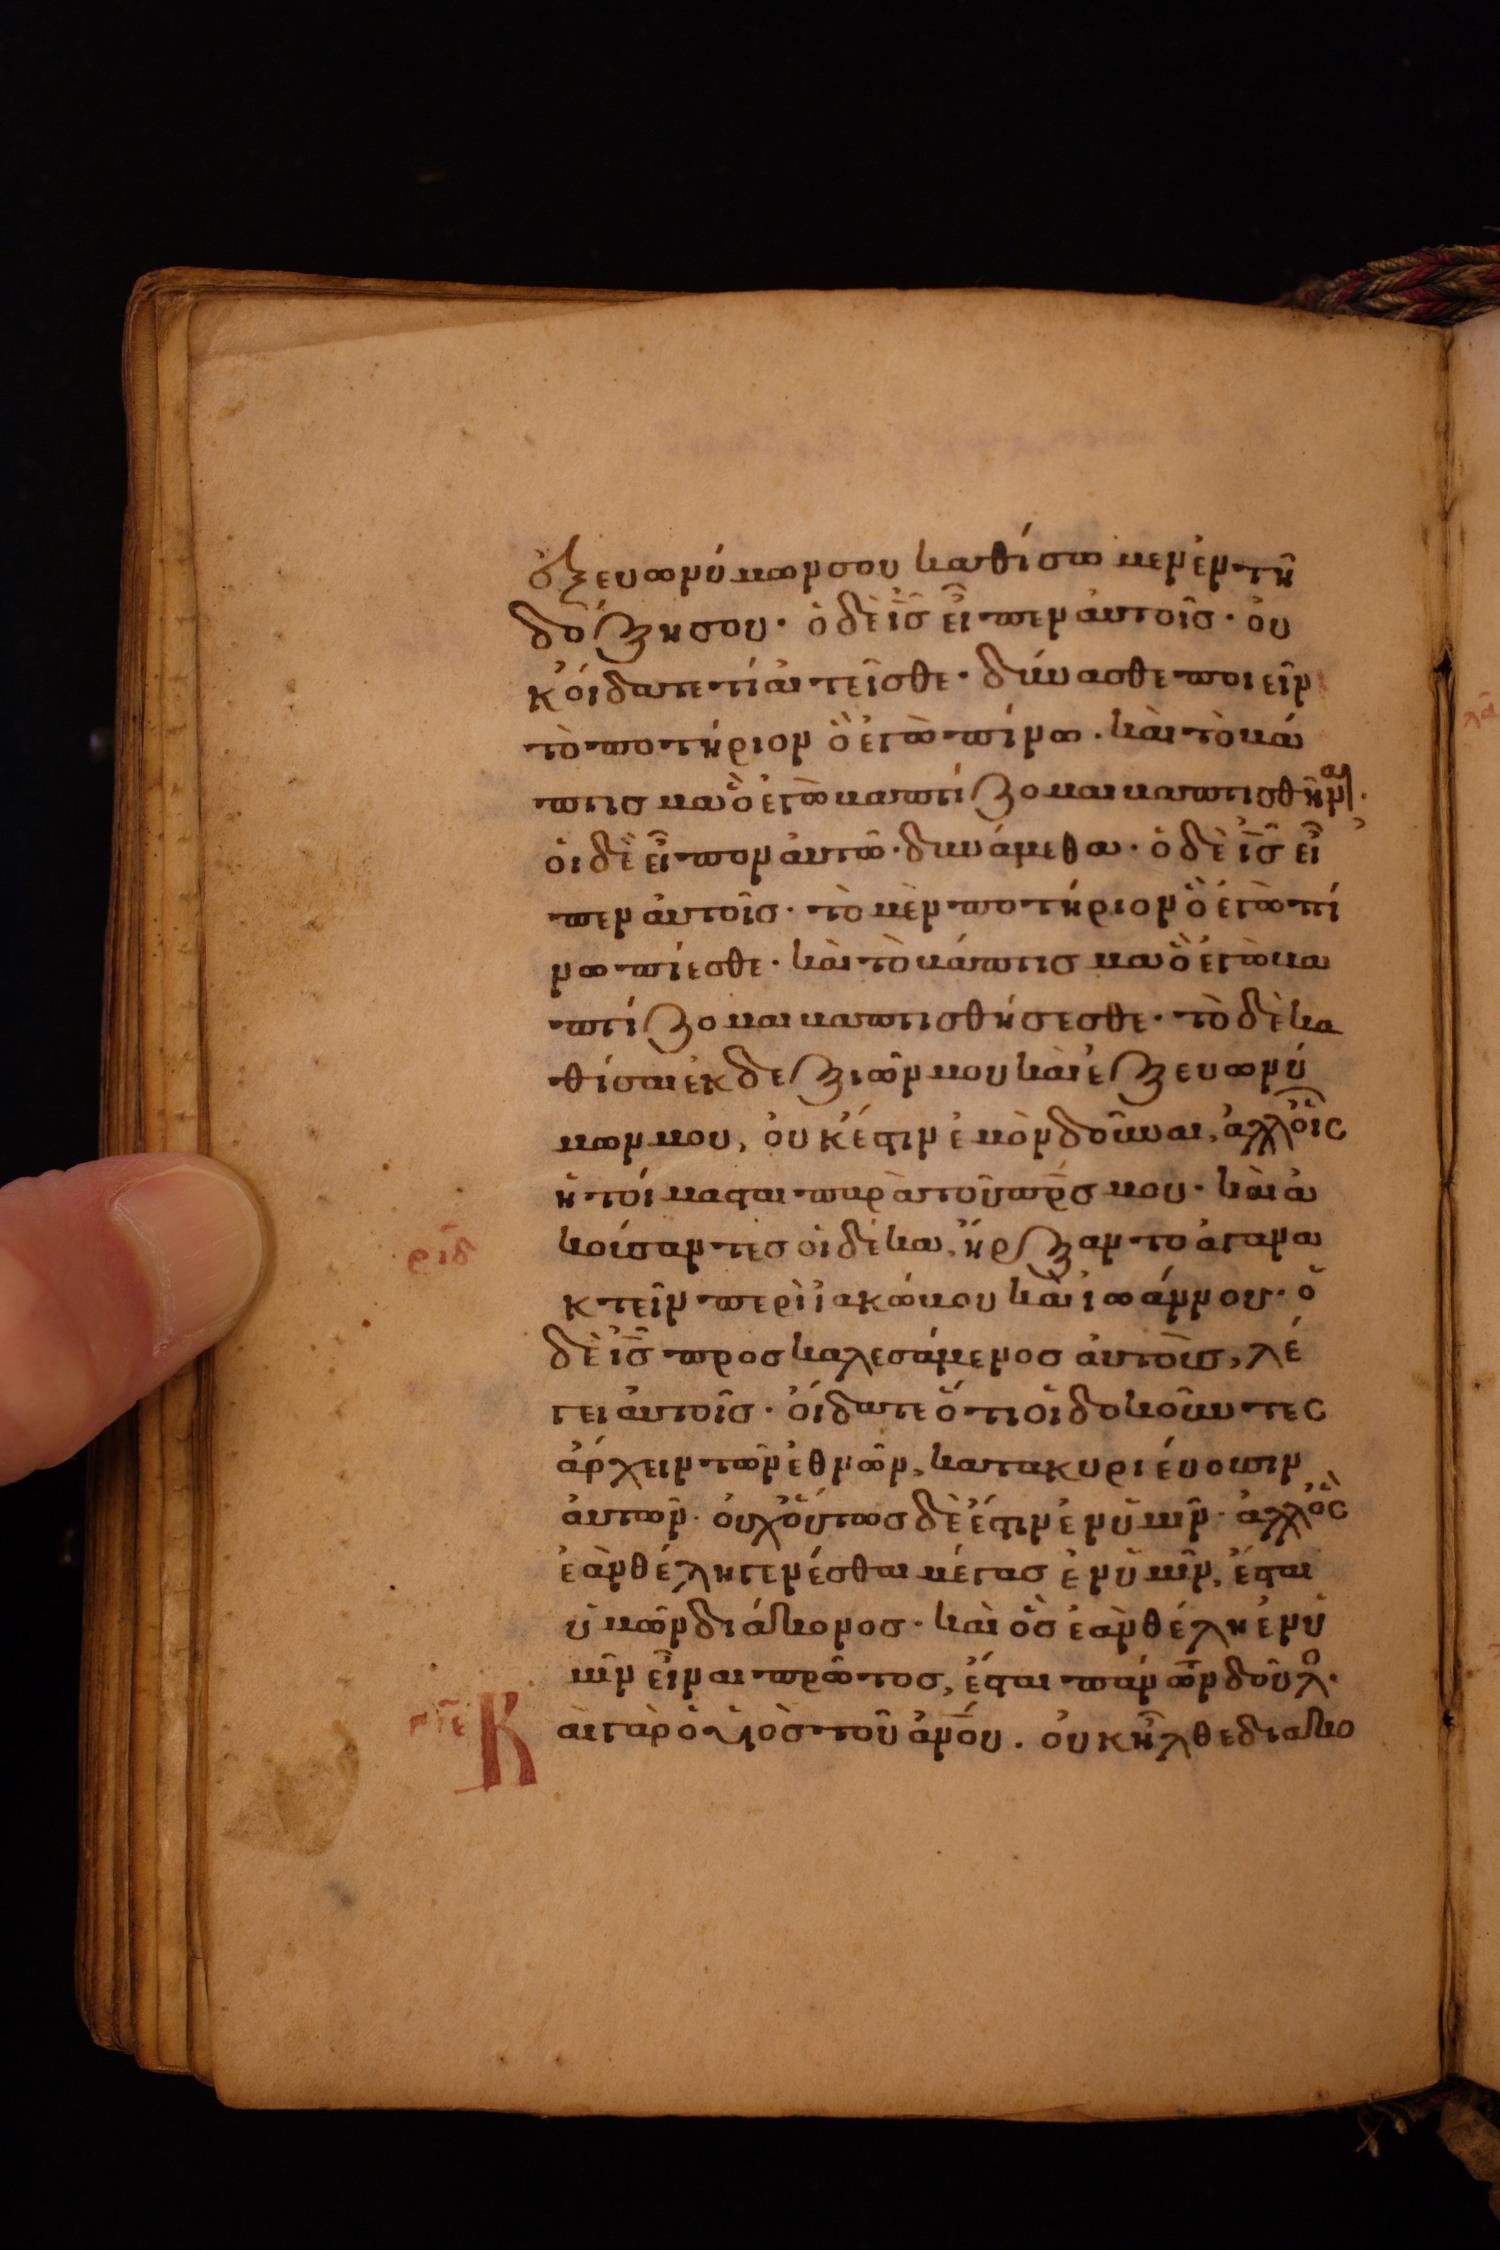 ὁ ἐξευωνύμων σου καθίσωμεν ἐν τῆ
δόξη σου · ὁ δὲ ἰς εἶπεν αὐτοῖς · οὐ
κ οἴδατε τί αἰτεῖσθε · δύνασθε ποιεῖν
τὸ ποτήριον ὃ ἐγὼ πίνω · καὶ τὸ βά
πτισμα ὃ ἐγὼ βαπτίζομαι βαπτισθῆναι ·
οἱ δὲ εἶπον αὐτῶ · δυνάμεθα · ὁ δὲ ἰς εἶ
πεν αὐτοῖς · τὸ μὲν ποτήριον ὃ ἐγὼ πί
νω πίεσθε · καὶ τὸ βάπτισμα ὃ ἐγὼ βα
πτίζομαι βαπτισθήσεσθε · τὸ δὲ κα
θίσαι ἐκ δεξιῶν μου καὶ ἐξευωνύ
μων μου, οὐκ ἔστιν ἐμὸν δοῦναι, ἀλλ οἷς
ἡτοίμασται παρὰ τοῦ πρς μου · καὶ ἀ
ριδ κούσαντες οἱ δέκα, ἤρξαντο ἀγανα
κτεῖν περὶ ἰακώβου καὶ ἰωάννου · ὁ
δὲ ἰς προσκαλεσάμενος αὐτοὺς, λέ
γει αὐτοῖς · οἴδατε ὅτι οἱ δοκοῦντες
ἄρχειν τῶν ἐθνῶν, κατακυριεύουσιν
αὐτῶν · οὐχ οὕτως δὲ ἔστιν ἐν ὑμῖν · ἀλλ ὃς
ἐὰν θέλη γενέσθαι μέγας ἐν ὑμῖν, ἔσται
ὑμῶν διάκονος · καὶ ὃς ἐὰν θέλη ἐν ὑ
μῖν εἶναι πρῶτος, ἔσται πάντων δοῦλο ·
ριε Καὶ γὰρ ὁ υἱὸς τοῦ ἀνου · οὐκ ἦλθε διακο